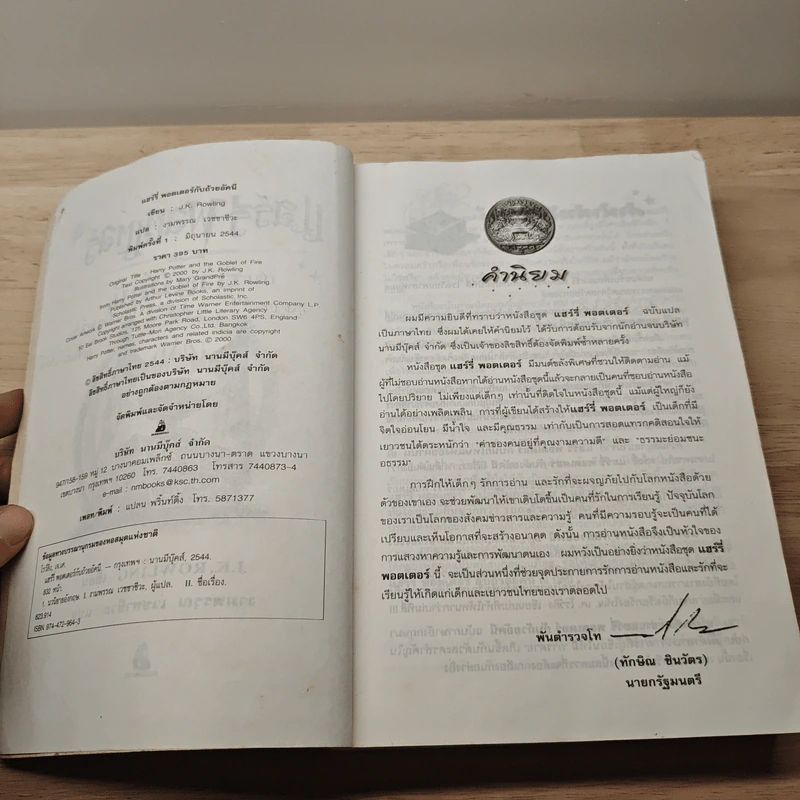 แฮร์รี่ พอตเตอร์กับถ้วยอัคนี
เขียน : J.K. Rowling
แปล : งามพรรณ เวชชาชีวะ
พิมพ์ครั้งที่ 1 : มิถุนายน 2544
ราคา 395 บาท
Original Title - Harry Potter and the Goblet of Fire
Text Copyright © 2000 by J.K. Rowling
Illustrations by Mary GrandPré
from Harry Potter and the Goblet of Fire by J.K. Rowling.
Published by Arthur Levine Books, an imprint of
Scholastic Press, a division of Scholastic Inc.
Cover Artwork © Warner Bros. A division of Time Warner Entertainment Company L.P.
Copyright arranged with Christopher Little Literary Agency
10 Eel Brook Studios, 125 Moore Park Road, London SW6 4PS, England
Through Tuttle-Mori Agency Co.,Ltd, Bangkok
Harry Potter, names, characters and related indicia are copyright
and trademark Warner Bros. © 2000
© ลิขสิทธิ์ภาษาไทย 2544 : บริษัท นานมีบุ๊คส์ จำกัด
ลิขสิทธิ์ภาษาไทยเป็นของบริษัท นานมีบุ๊คส์ จำกัด
อย่างถูกต้องตามกฎหมาย
จัดพิมพ์และจัดจำหน่ายโดย
บริษัท นานมีบุ๊คส์ จำกัด
947/158-159 หมู่ 12 บางนาคอมเพล็กซ์ ถนนบางนา-ตราด แขวงบางนา
เขตบางนา กรุงเทพฯ 10260 โทร. 7440863 โทรสาร 7440873-4
e-mail : nmbooks@ksc.th.com
เพลท/พิมพ์ : แปลน พริ้นท์ติ้ง โทร. 5871377
ข้อมูลทางบรรณานุกรมของหอสมุดแห่งชาติ
โรว์ลิ่ง, เจ.เค.
แฮร์รี่ พอตเตอร์กับถ้วยอัคนี. -- กรุงเทพฯ : นานมีบุ๊คส์, 2544.
832 หน้า.
1. นวนิยายอังกฤษ. I. งามพรรณ เวชชาชีวะ, ผู้แปล. II. ชื่อเรื่อง.
823.914
ISBN 974-472-964-3
คำนิยม
ผมมีความยินดีที่ทราบว่าหนังสือชุด แฮร์รี่ พอตเตอร์ ฉบับแปล
เป็นภาษาไทย ซึ่งผมได้เคยให้คำนิยมไว้ ได้รับการต้อนรับจากนักอ่านจนบริษัท
นานมีบุ๊คส์ จำกัด ซึ่งเป็นเจ้าของลิขสิทธิ์ต้องจัดพิมพ์ซ้ำหลายครั้ง
หนังสือชุด แฮร์รี่ พอตเตอร์ มีมนต์ขลังพิเศษที่ชวนให้ติดตามอ่าน แม้
ผู้ที่ไม่ชอบอ่านหนังสือหากได้อ่านหนังสือชุดนี้แล้วจะกลายเป็นคนที่ชอบอ่านหนังสือ
ไปโดยปริยาย ไม่เพียงแต่เด็กๆ เท่านั้นที่ติดใจในหนังสือชุดนี้ แม้แต่ผู้ใหญ่ก็ยัง
อ่านได้อย่างเพลิดเพลิน การที่ผู้เขียนได้สร้างให้แฮร์รี่ พอตเตอร์ เป็นเด็กที่มี
จิตใจอ่อนโยน มีน้ำใจ และมีคุณธรรม เท่ากับเป็นการสอดแทรกคติสอนใจให้
เยาวชนได้ตระหนักว่า "ค่าของคนอยู่ที่คุณงามความดี" และ "ธรรมะย่อมชนะ
อธรรม"
การฝึกให้เด็กๆ รักการอ่าน และรักที่จะผจญภัยไปกับโลกหนังสือด้วย
ตัวของเขาเอง จะช่วยพัฒนาให้เขาเติบโตขึ้นเป็นคนที่รักในการเรียนรู้ ปัจจุบันโลก
ของเราเป็นโลกของสังคมข่าวสารและความรู้ คนที่มีความรอบรู้จะเป็นคนที่ได้
เปรียบและเห็นโอกาสที่จะสร้างอนาคต ดังนั้น การอ่านหนังสือจึงเป็นหัวใจของ
การแสวงหาความรู้และการพัฒนาตนเอง ผมหวังเป็นอย่างยิ่งว่าหนังสือชุด แฮร์รี่
พอตเตอร์ นี้ จะเป็นส่วนหนึ่งที่ช่วยจุดประกายการรักการอ่านหนังสือและรักที่จะ
เรียนรู้ให้เกิดแก่เด็กและเยาวชนไทยของเราตลอดไป
พันตำรวจโท
(ทักษิณ ชินวัตร)
นายกรัฐมนตรี